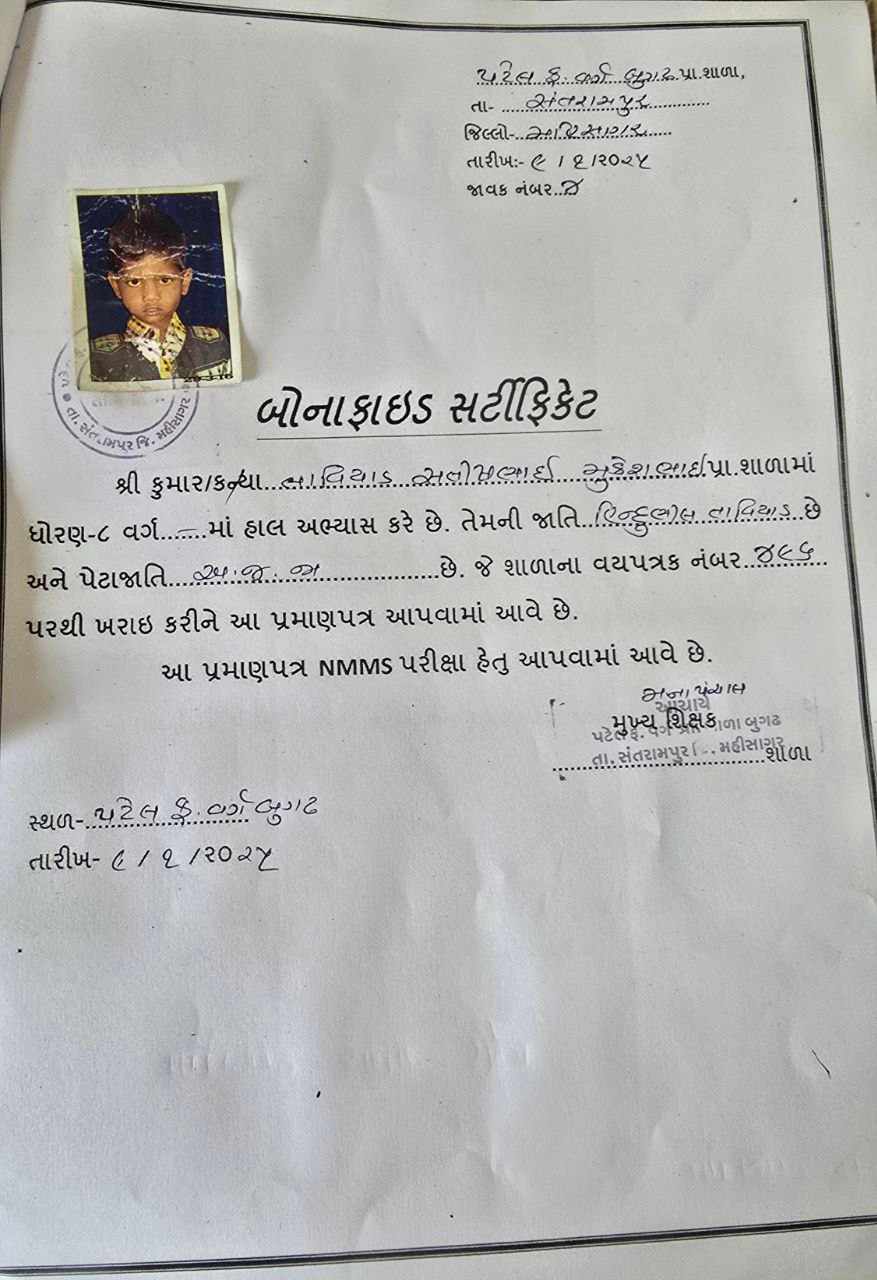 પટેલ ફ. વર્ગ બુગઢ પ્રા.શાળા,
તા- સંતરામપુર
જિલ્લો- મહિસાગર
તારીખ:- ૯ / ૧ /૨૦૨૫
જાવક નંબર..૪
તા.સંતરામપુર જિ. મહીસાગર
બોનાફાઇડ સર્ટીફિકેટ
શ્રી કુમાર/કન્યા... તાવિયાડ સતીષભાઈ મુકેશભાઇ પ્રા.શાળામાં
ધોરણ-૮ વર્ગ..–...માં હાલ અભ્યાસ કરે છે. તેમની જાતિ હિન્દુભીલ તાવિયાડ છે
અને પેટાજાતિ....અ.જ.જા..............છે. જે શાળાના વયપત્રક નંબર..૪૯૬
પરથી ખરાઇ કરીને આ પ્રમાણપત્ર આપવામાં આવે છે.
આ પ્રમાણપત્ર NMMS પરીક્ષા હેતુ આપવામાં આવે છે.
પંચાલ
આચાર્ય
મુખ્ય શિક્ષક
પટેલ ફ. વર્ગ પ્રા. શાળા બુગઢ
તા.સંતરામપુર જિ. મહીસાગર
..............................શાળા
સ્થળ- પટેલ ફ. વર્ગ બુગઢ
તારીખ- ૯ / ૧ /૨૦૨૫